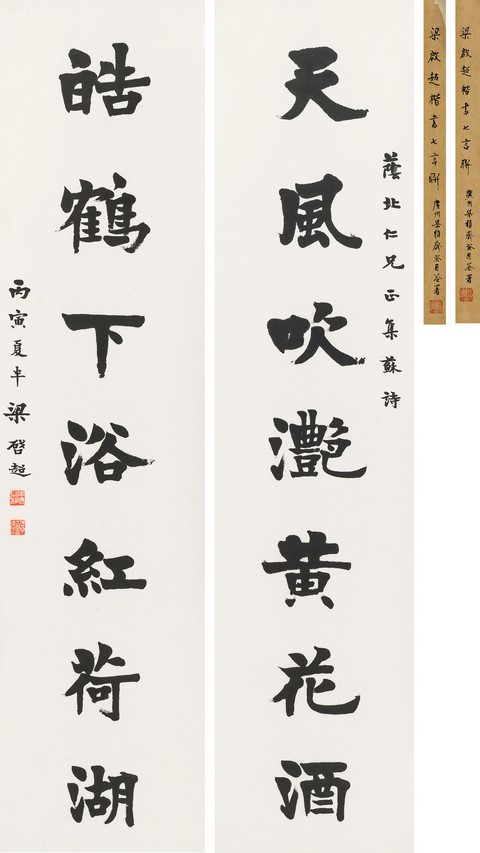 梁啟超楷書七言聯
梁啟超楷書七言聯
蔭北仁兄正集蘇詩
天風吹灔黃花酒
皓鶴下浴紅荷湖
丙寅夏半梁啓超